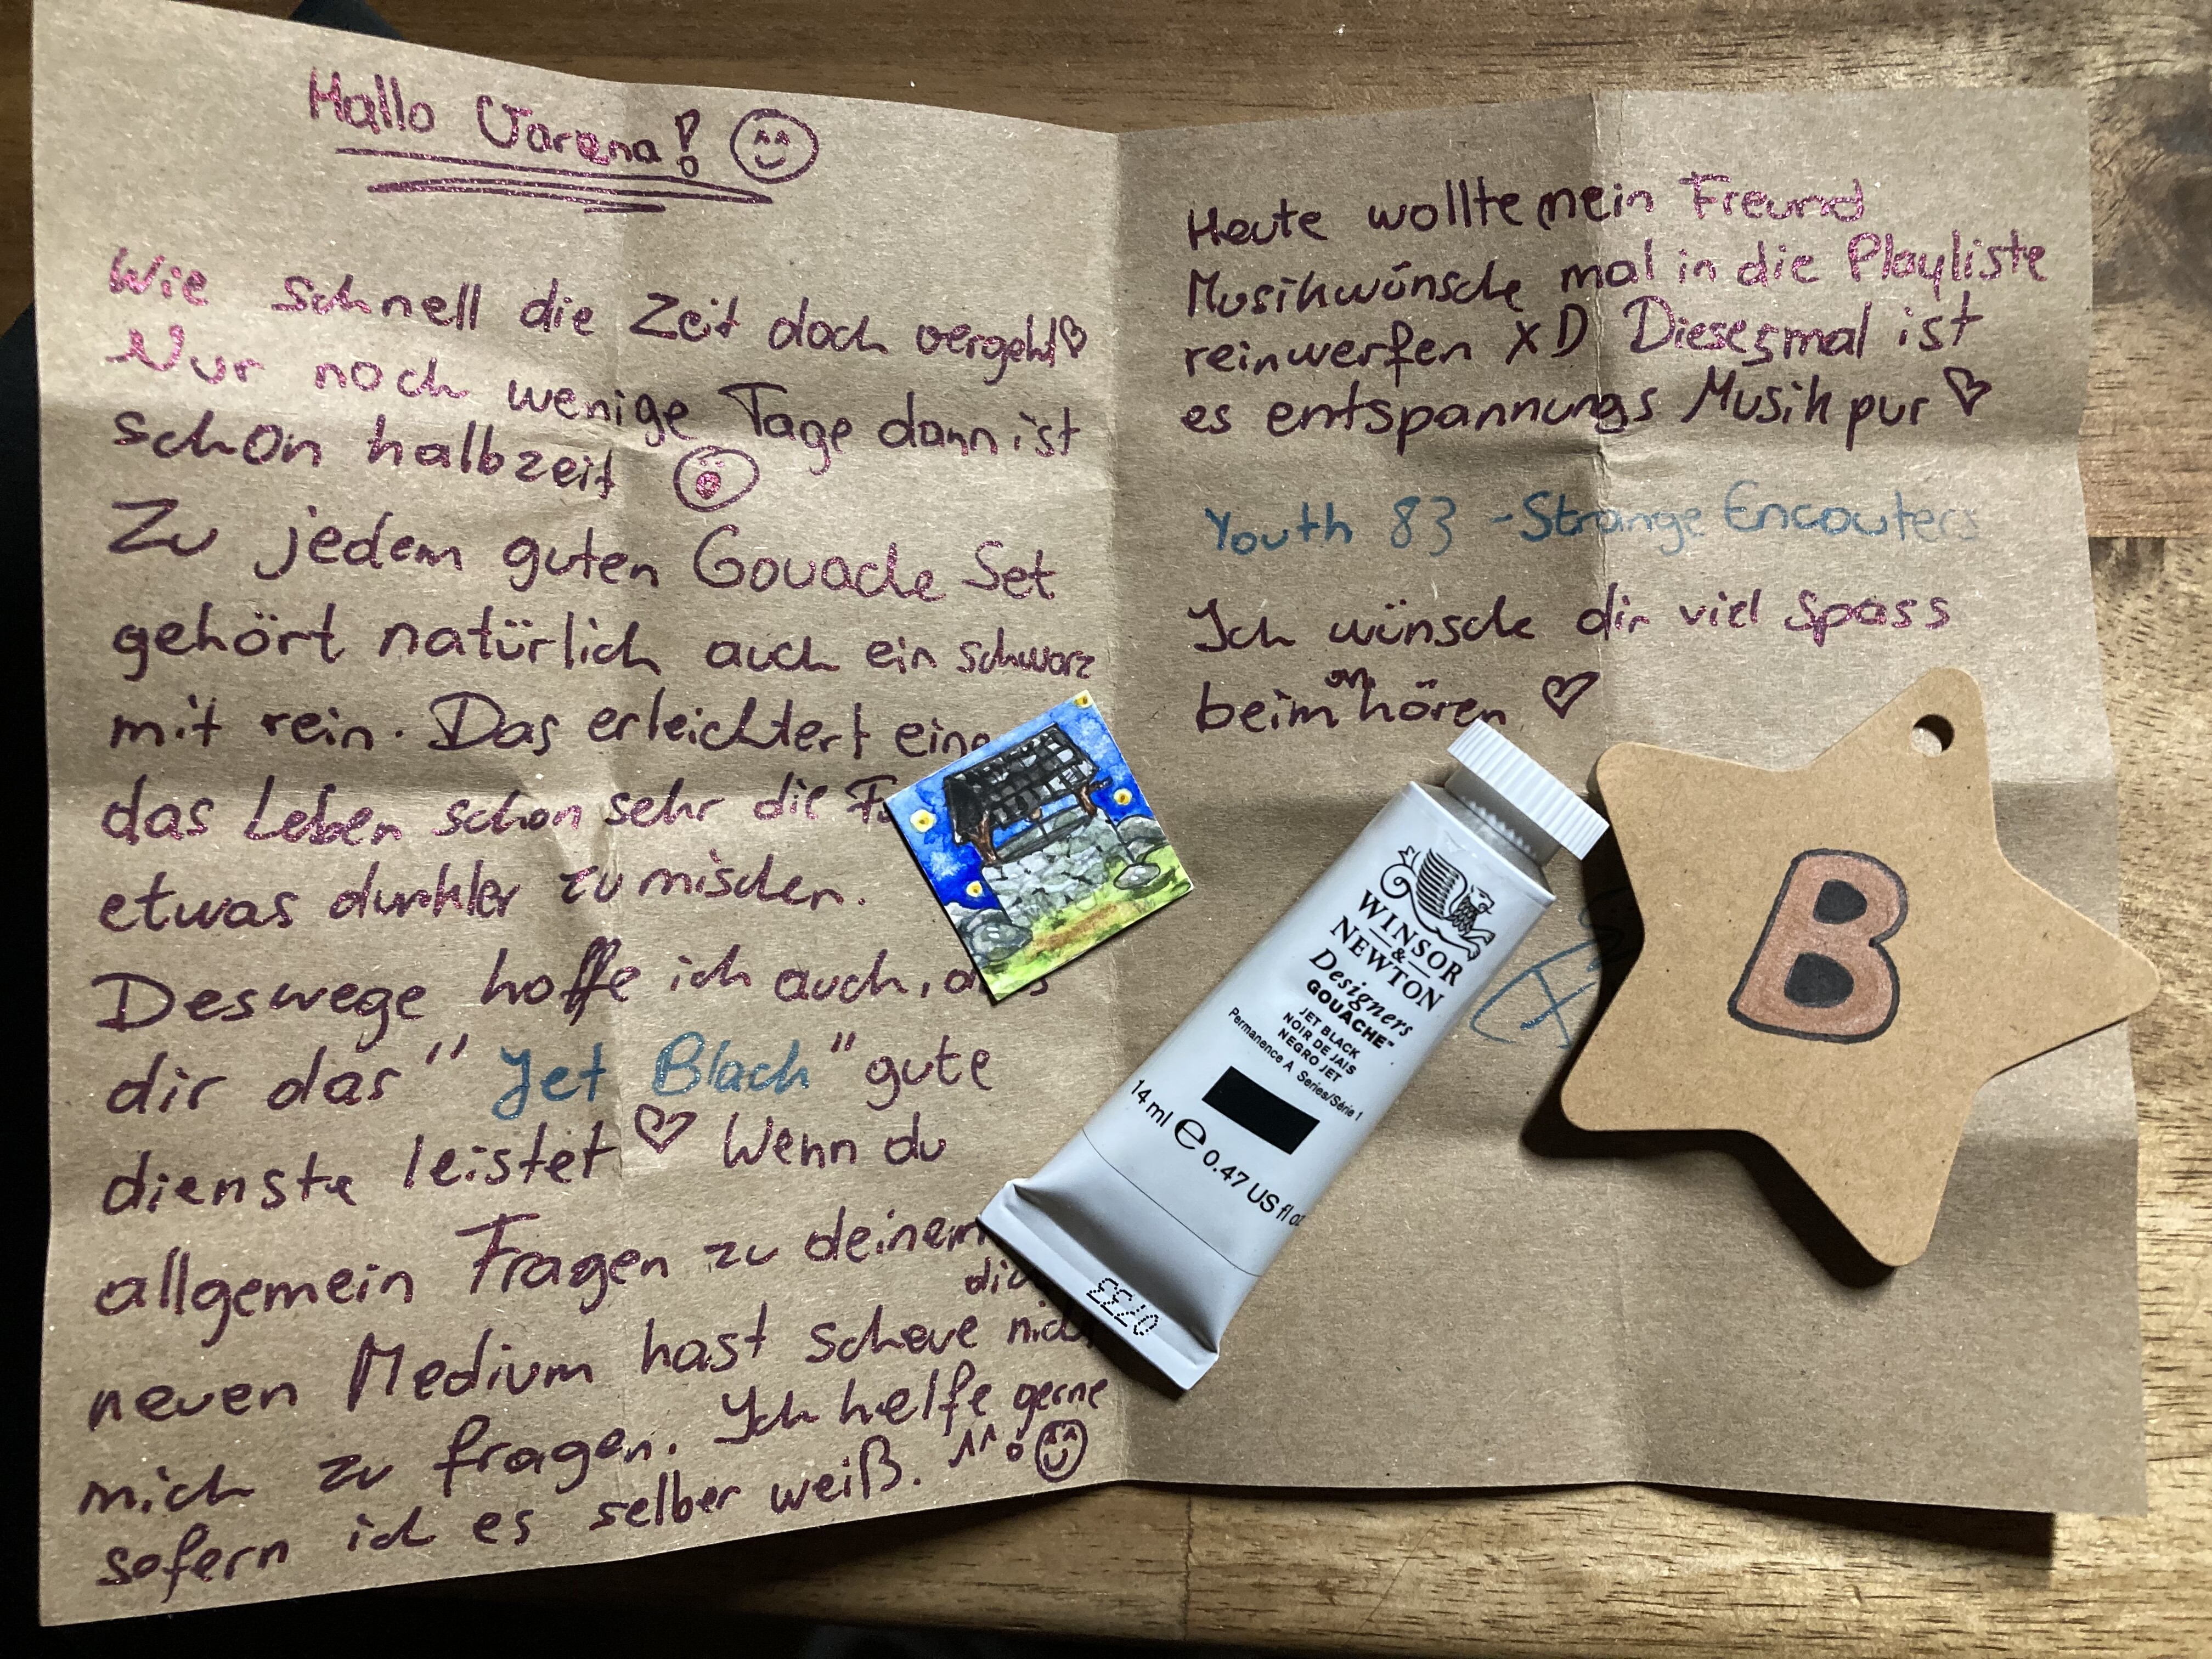 Hallo Varena!
Wie schnell die Zeit doch vergeht
Nur noch wenige Tage dann ist
schon halbzeit
Zu jedem guten Gouache Set
gehört natürlich auch ein schwarz
mit rein. Das erleichtert
das Leben schon sehr die
etwas dunkler zu mischen.
Deswege hoffe ich auch,
dir das "Jet Black" gute
dienste leistet Wenn du
allgemein Fragen zu deinem
neuen Medium hast scheue dich nicht
mich zu fragen. Ich helfe gerne
sofern ich es selber weiß. ^^
Heute wollte mein Freund
Musikwünsche mal in die Playliste
reinwerfen XD Diesesmal ist
es entspannungs Musik pur
Youth 83 - Strange Encouters
Ich wünsche dir viel Spass
beim anhören
WINSOR
&
NEWTON
Designers
GOUACHE™
JET BLACK
NOIR DE JAIS
NEGRO JET
Permanence A Series/Série 1
14 ml e 0.47 US fl oz
0733
B